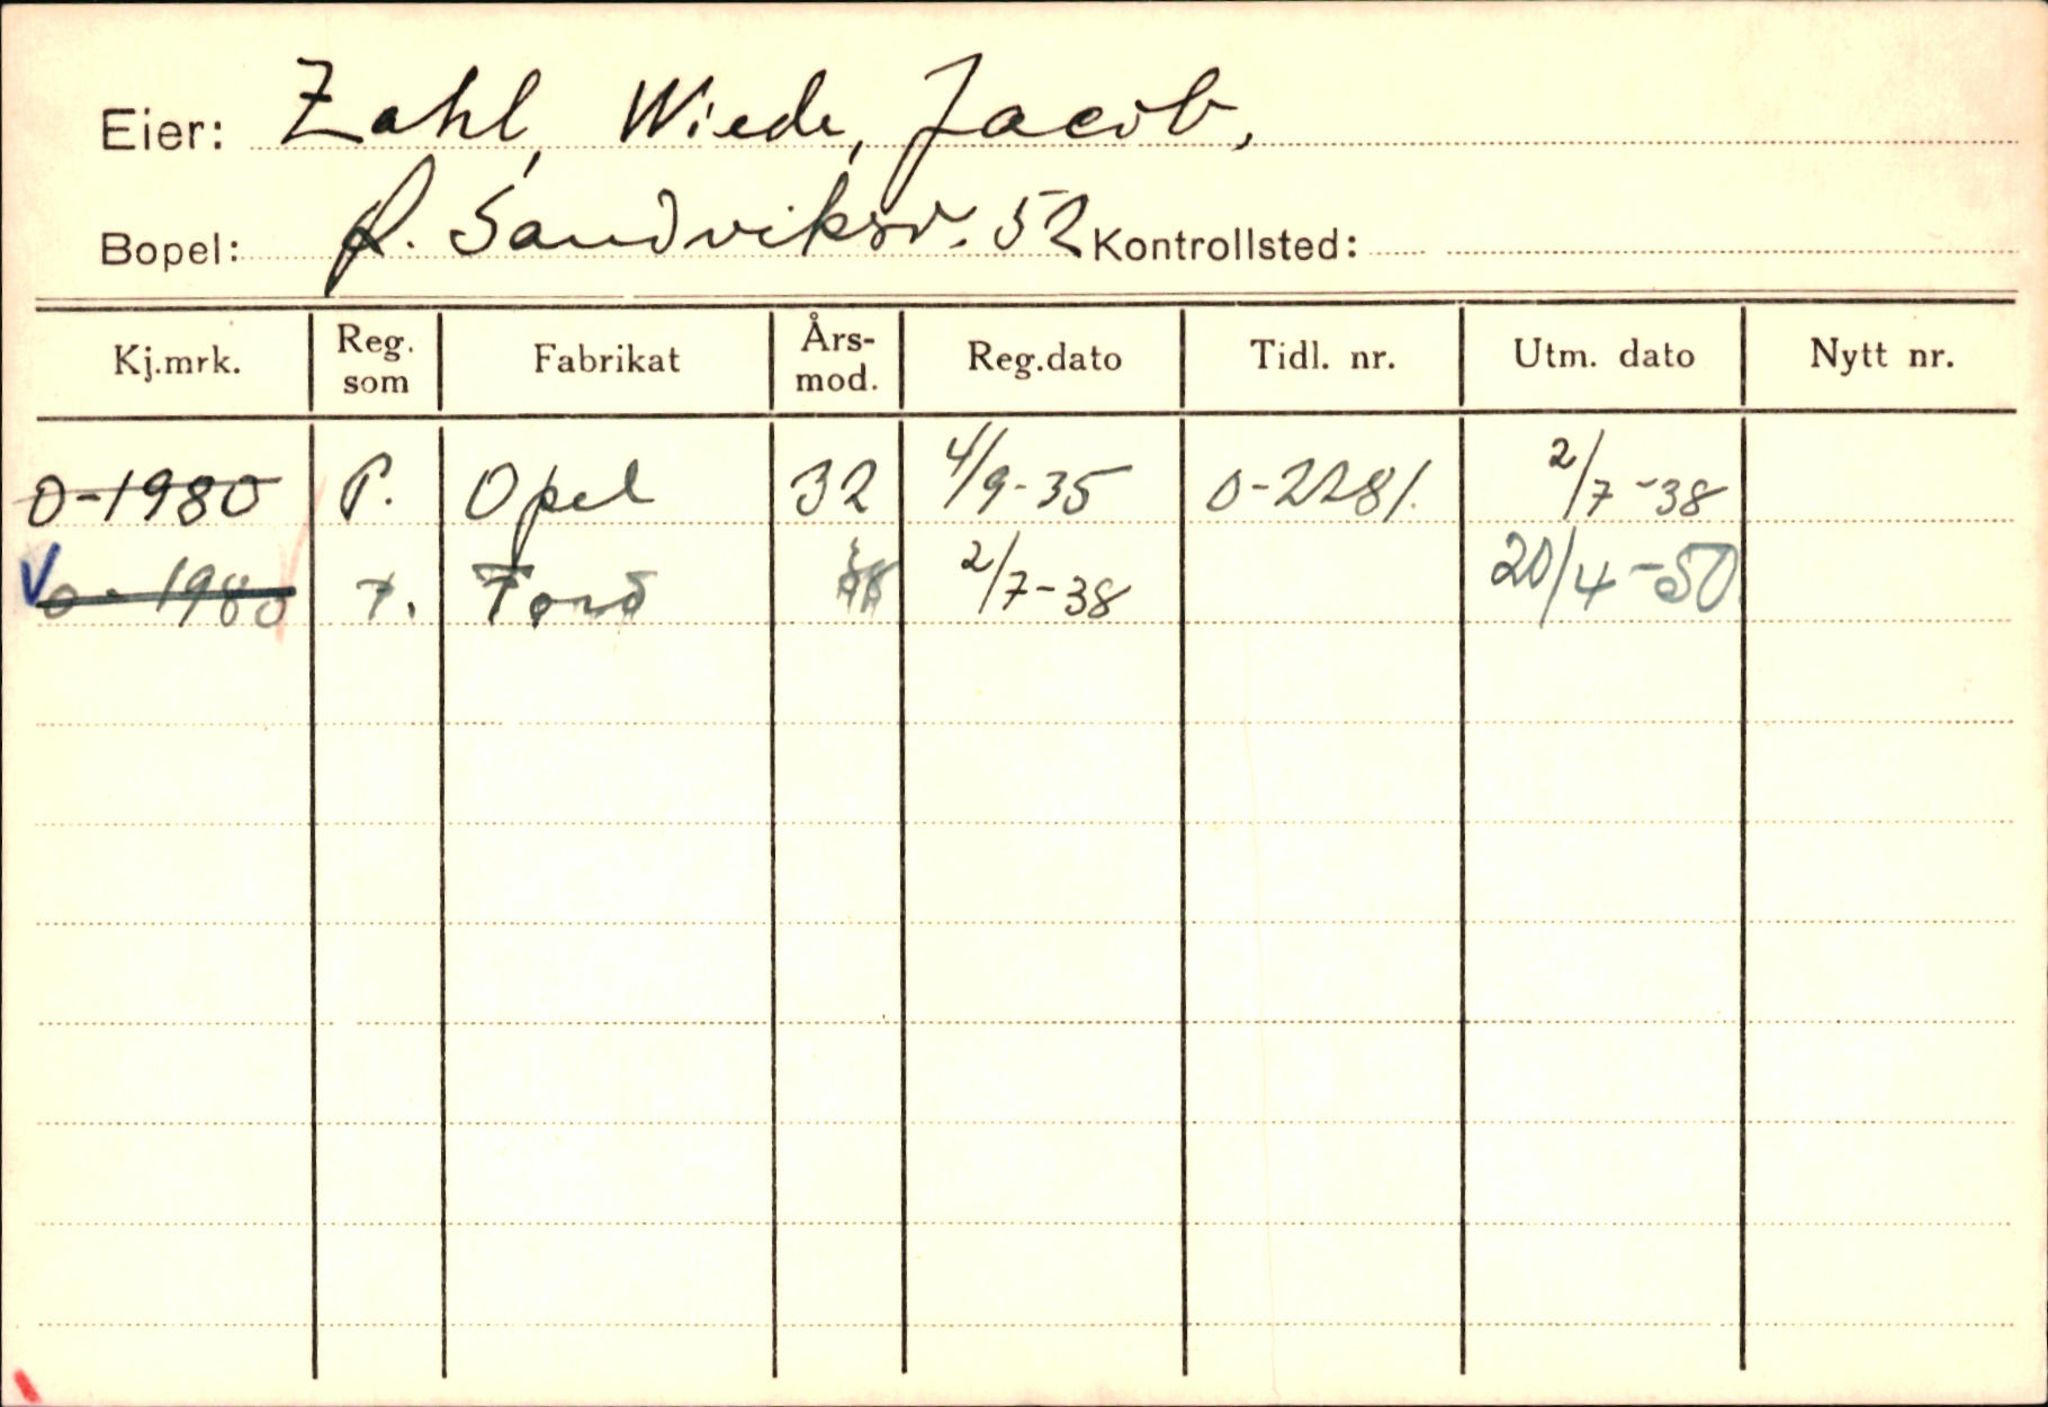 Eier: Zahl, Wiede, Jacob,
Bopel: Ø. Sandviksv. 52 Kontrollsted:
Kj.mrk. Reg. som Fabrikat Års- mod. Reg.dato Tidl. nr. Utm. dato Nytt nr.
O-1980 P. Opel 32 4/9-35 O-2281. 2/7-38
O-1980 Ford 2/7-38 20/4-50